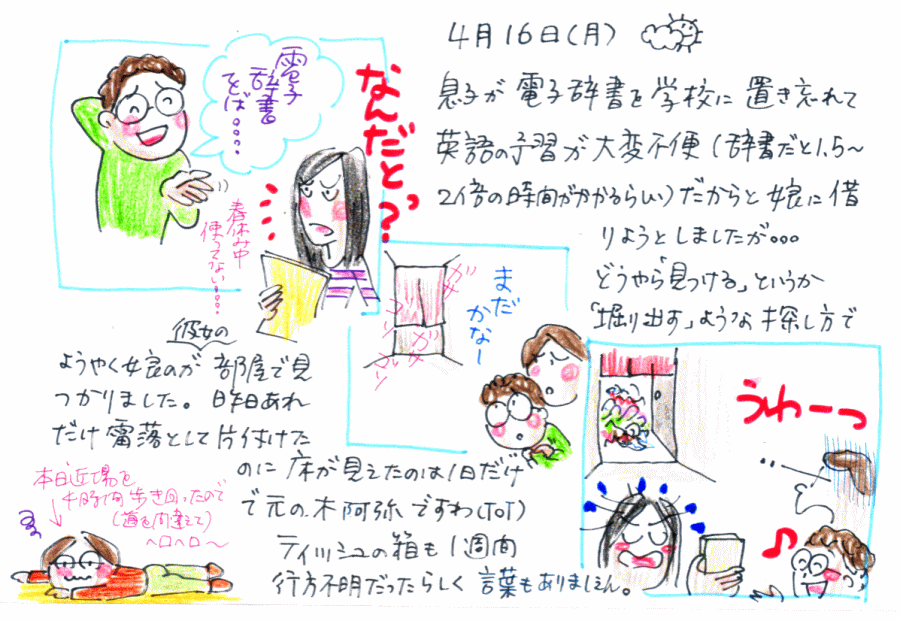 4月16日(月)
息子が電子辞書を学校に置き忘れて
英語の予習が大変不便(辞書だと1.5~
2倍の時間がかかるらしい)だからと娘に借
りようとしましたが。。。
どうやら「見つける」というか
「掘り出す」ような探し方で
電子
辞書
とば・・・・
なんだとっ?
春休み中
使ってない・・・
まだ
かなー
ガサ
ゴソ
ガサ
彼女の
ようやく娘のが部屋で見
つかりました。昨日あれ
だけ雷落として片付けた
のに床が見えたのは1日だけ
で元の木阿弥ですわ(ToT)
ティッシュの箱も1週間
行方不明だったらしく言葉もありましぇん。
うわーっ
本日近場を
4時間歩き回ったので
(道を間違えて)
ヘロヘロ~